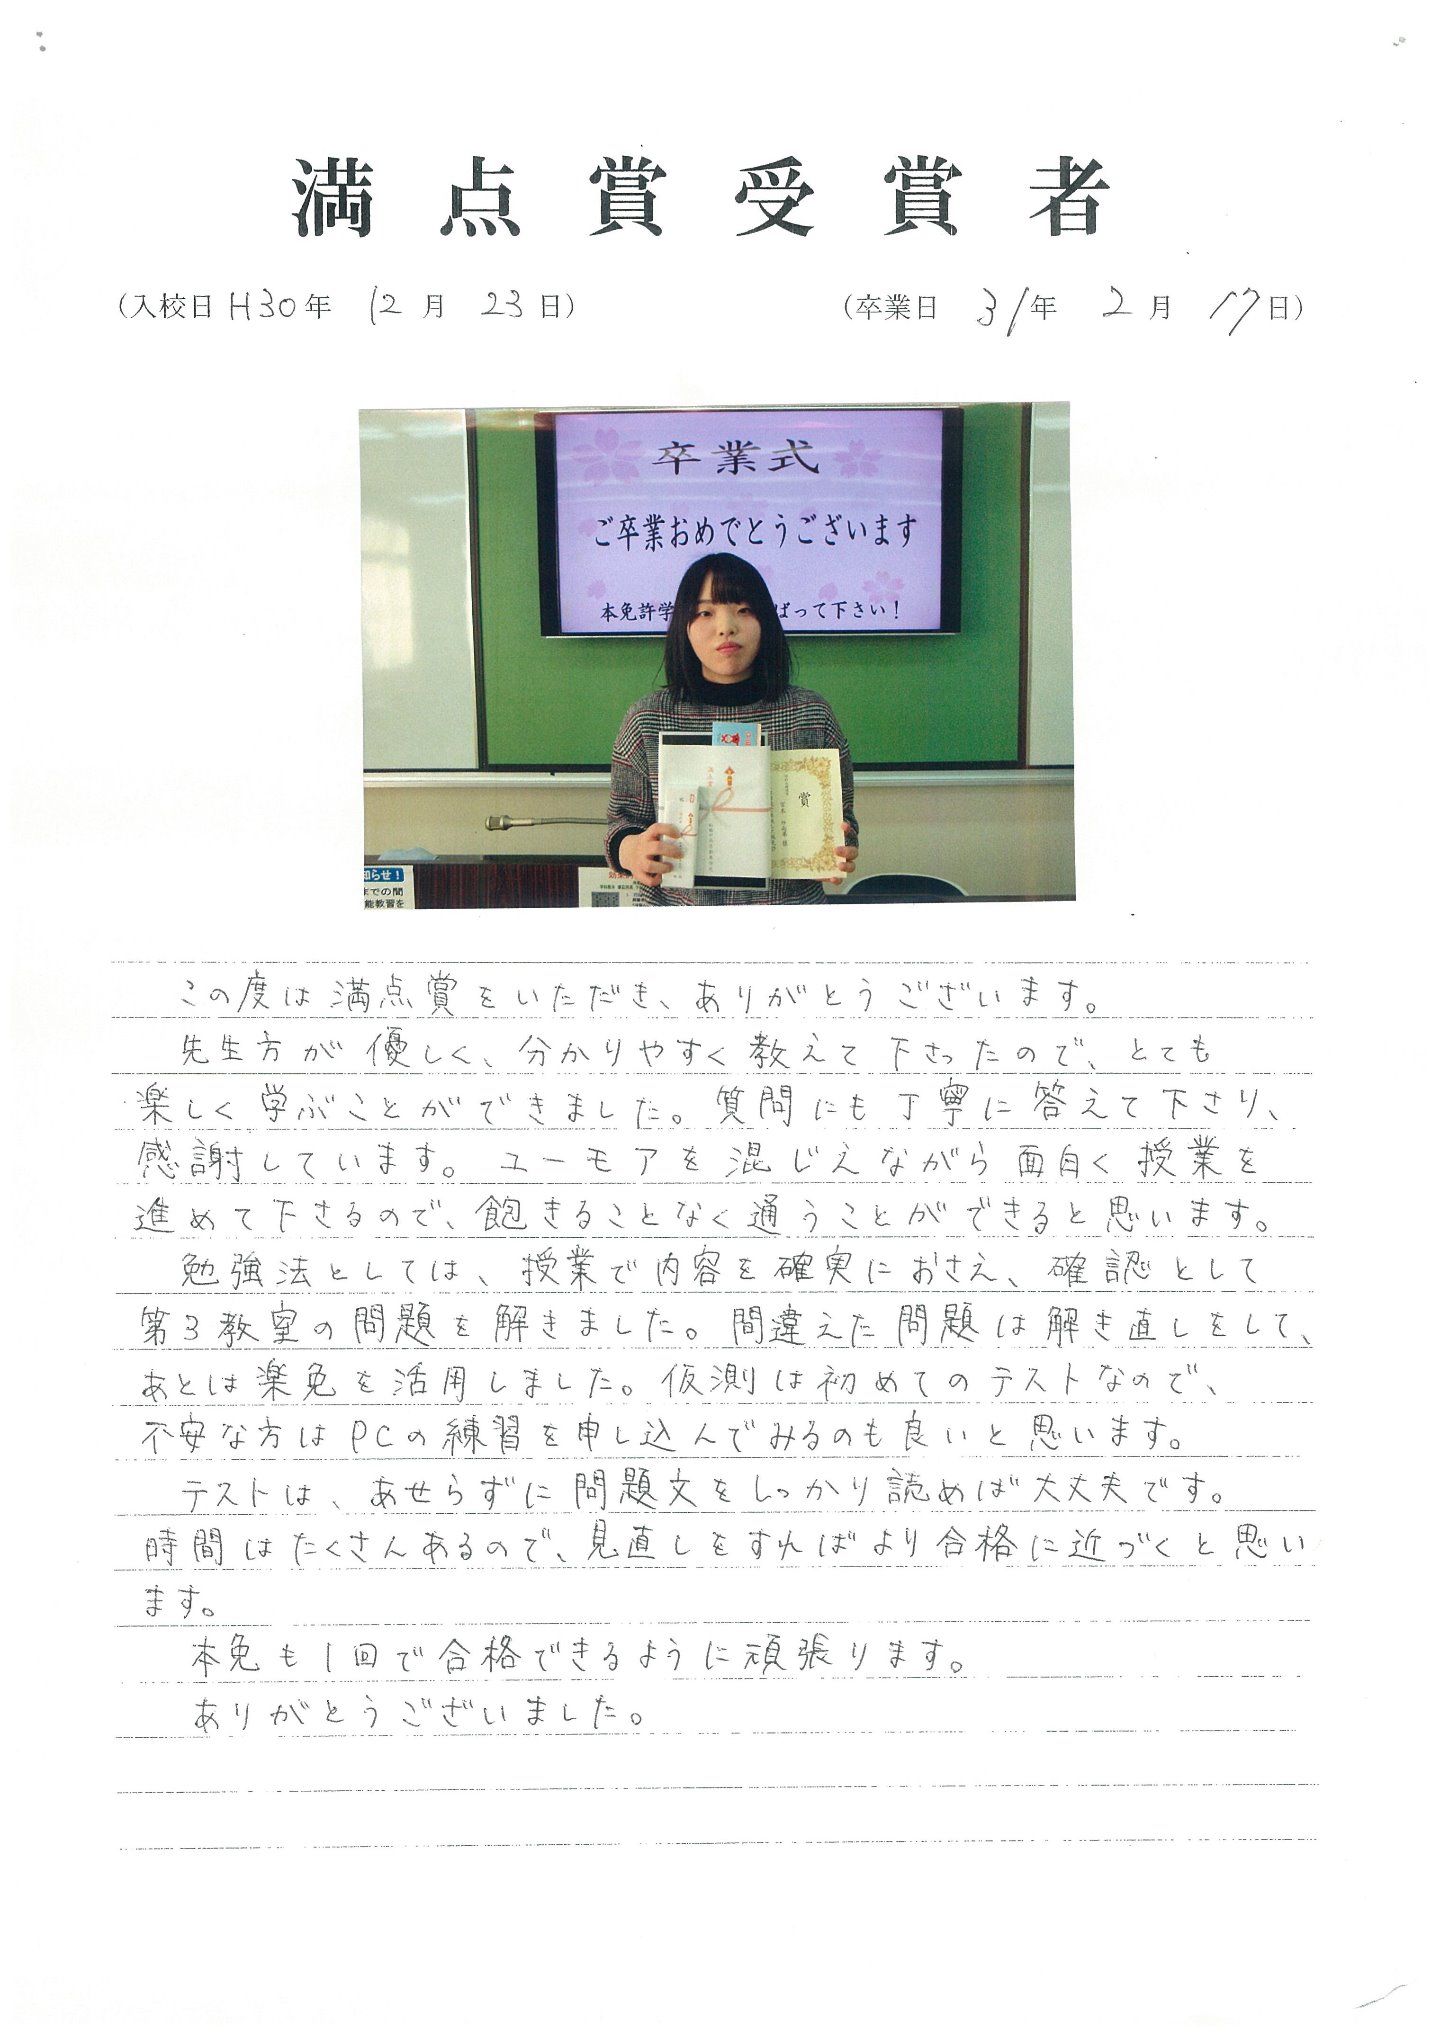 満点賞受賞者
(入校日 H30年 12月 23日) (卒業日 31年 2月 17日)
卒業式
ご卒業おめでとうございます
本免許学 ばって下さい!
賞
知らせ!
までの間
能教習を
この度は満点賞をいただき、ありがとうございます。
先生方が優しく、分かりやすく教えて下さったので、とても
楽しく学ぶことができました。質問にも丁寧に答えて下さり、
感謝しています。ユーモアを混じえながら面白く授業を
進めて下さるので、飽きることなく通うことができると思います。
勉強法としては、授業で内容を確実におさえ、確認として
第3教室の問題を解きました。間違えた問題は解き直しをして、
あとは楽免を活用しました。仮測は初めてのテストなので、
不安な方はPCの練習を申し込んでみるのも良いと思います。
テストは、あせらずに問題文をしっかり読めば大丈夫です。
時間はたくさんあるので、見直しをすればより合格に近づくと思い
ます。
本免も1回で合格できるように頑張ります。
ありがとうございました。